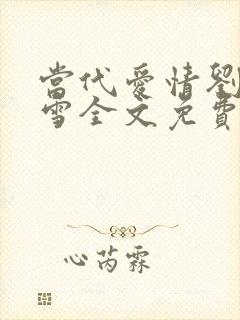 當代愛情劉
雪全文免費
心芮霖